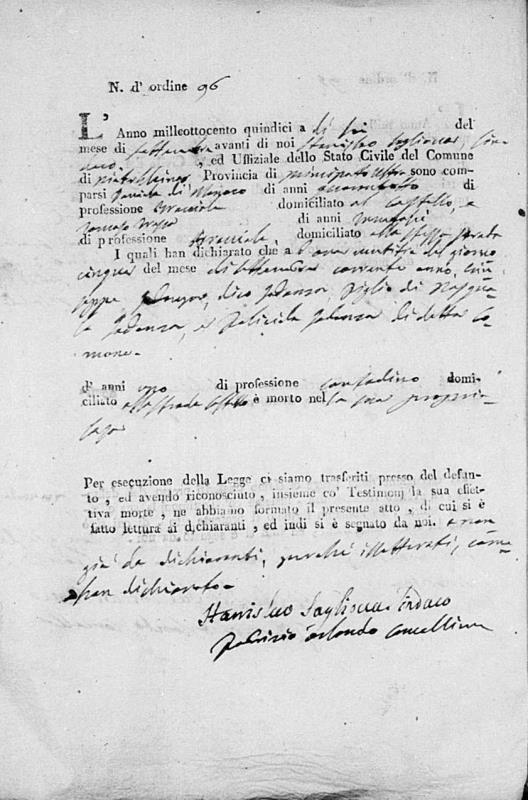 N. d' ordine 96
L' Anno milleottocento quindici a dì sei del
mese di settembre avanti di noi Stanislao Saglioccca, Sin-
daco, ed Uffiziale dello Stato Civile del Comune
di Pietrelcina, Provincia di Principato Ultra sono com-
parsi Daniele di Monaco di anni quarantotto di
professione bracciale domiciliato al Castello, e
Tomaso di anni
di professione bracciale, domiciliato alla stessa strada
I quali han dichiarato che a del giorno
cinque del mese di settembre corrente anno, Giu-
seppe dico figlio di Pasqua-
le e di detto Co-
mone.
d' anni uno di professione contadino domi-
ciliato alla strada Castello è morto nella sua propria
casa
Per esecuzione della Legge ci siamo trasferiti presso del defun-
to, ed avendo riconosciuto, insieme co' Testimonj la sua effet-
tiva morte, ne abbiamo formato il presente atto, di cui si è
fatto lettura ai dichiaranti, ed indi si è segnato da noi. e non
già da dichiaranti, perchè illetterati, come
han dichiarato.
Stanislao Sagliocca Sindaco
Patrizio Orlando Cancelliere